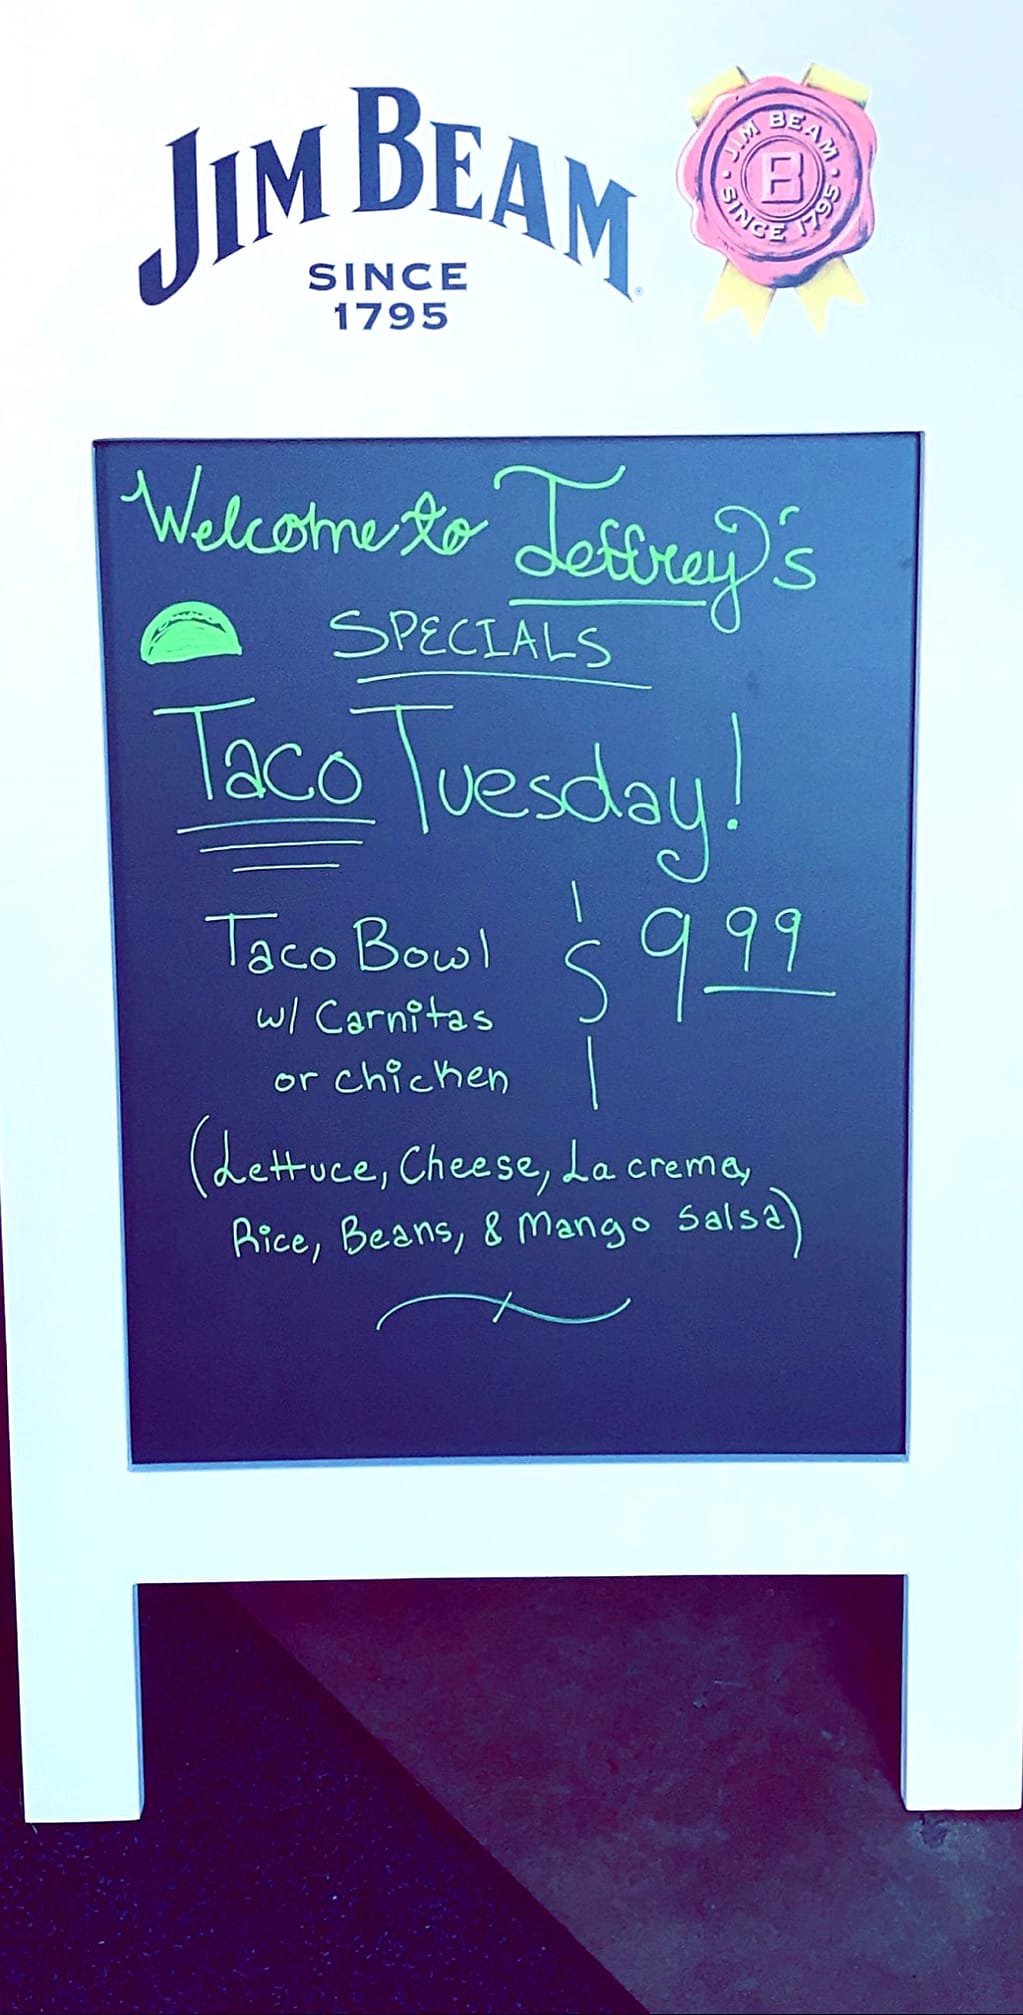 JIM BEAM
SINCE
1795
JIM BEAM
B
SINCE 1795
Welcome to Jeffrey's
SPECIALS
Taco Tuesday!
Taco Bowl $9.99
w/ Carnitas
or chicken
(Lettuce, Cheese, La crema,
Rice, Beans, & Mango Salsa)